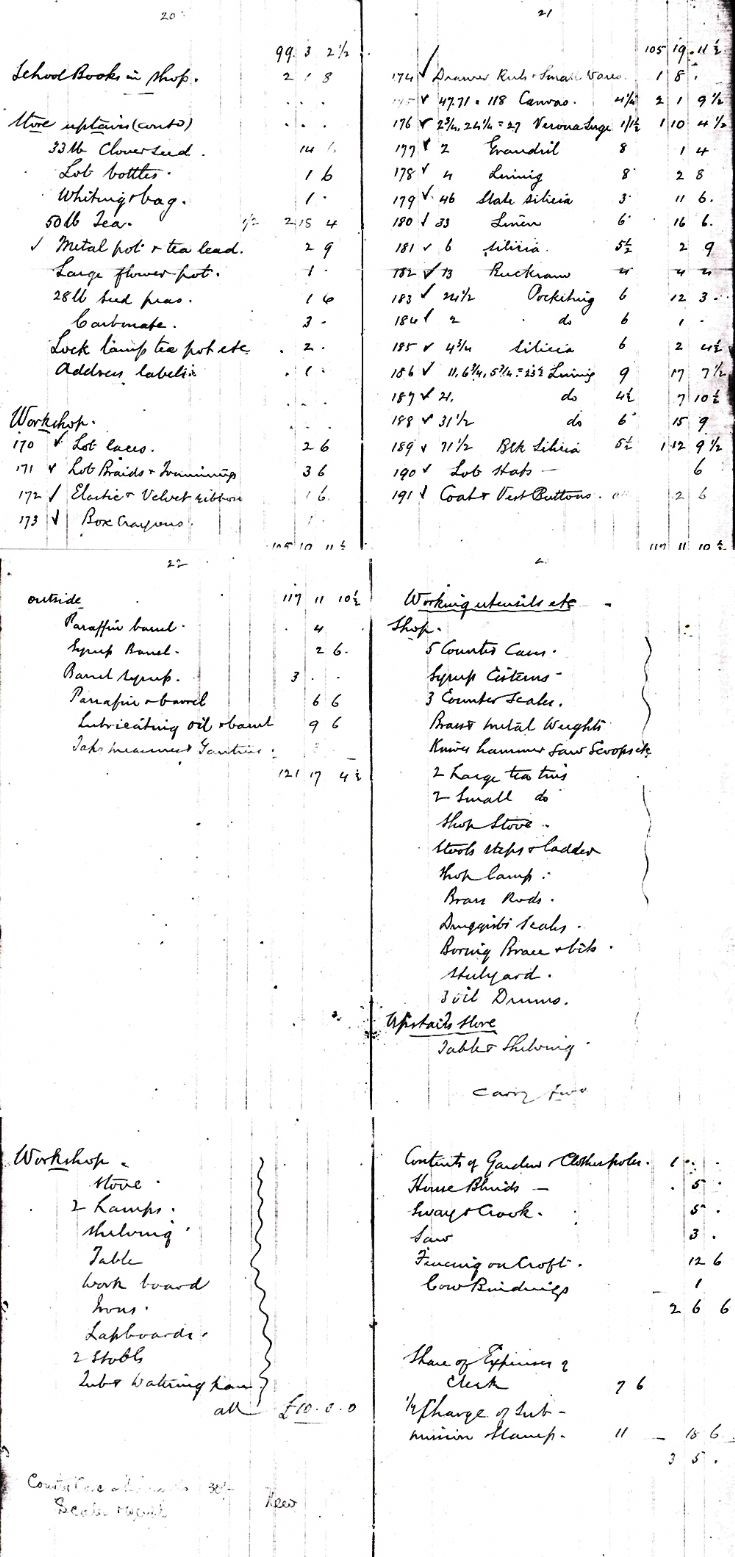 20
99 3 2½
School Books in shop. 2 1 8
Store upstairs (contd)
33 lb Cloverseed. 14
Lot bottles. 1 6
Whiting & bag. 1
50 lb Tea. 1/2 2 15 4
✓ Metal pot & tea lead. 2 9
Large flower pot. 1
28 lb seed peas. 1 6
Carbonate. 3
Lock lamp tea pot etc. 2
Address labels. 1
Workshop.
170 ✓ Lot laces. 2 6
171 ✓ Lot Braids & Trimmings 3 6
172 ✓ Elastic & Velvet ribbon 1 6
173 ✓ Box Crayons. 1
105 19 11½
21
105 19 11½
174 ✓ Drawer & Small Wares 1 8
✓ 118 Canvas. 4¼ 2 1 9½
176 ✓ 2¾, 24¼ = 27 Verona Serge 1/1½ 1 10 4½
177 ✓ 2 8 1 4
178 ✓ 4 Lining 8 2 8
179 ✓ 46 Slate silicia 3 11 6
180 ✓ 33 Linen 6 16 6
181 ✓ 6 silicia. 5½ 2 9
182 ✓ 13 Buckram 4 4 4
183 ✓ 24½ Pocketing 6 12 3
184 ✓ 2 do 6 1
185 ✓ 4¾ Silicia 6 2 4½
186 ✓ 11, 6¾, 5¾ = 23½ Lining 9 17 7½
187 ✓ 21. do 4½ 7 10½
188 ✓ 31½ do 6 15 9
189 ✓ 71½ Blk Silicia 5½ 1 12 9½
190 ✓ Lot Stats — 6
191 ✓ Coat & Vest Buttons. 2 6
117 11 10½
22
outside 117 11 10½
Paraffin barrel. 4
Syrup Barrel. 2 6
Barrel syrup. 3
Paraffin & barrel 6 6
Lubricating oil & barrel 9 6
Taps measures & Gantries.
121 17 4½
Working utensils etc
Shop.
5 Counter Cans.
Syrup Cisterns
3 Counter Scales.
Brass & metal Weights
Knives hammer Saw Scoops etc
2 Large tea tins
2 Small do
Shop Stove.
Stools steps & ladder
Shop lamp.
Brass Rods.
Druggists Scales.
Boring Brace & bits.
Steelyard.
3 oil Drums.
Upstairs store
Table & Shelving
Carry fwd
Workshop.
Stove
2 Lamps.
Shelving
Table
Work board
Irons.
Lapboards.
2 Stools
Tub & Watering pan
all £10.0.0
Contents of Garden & Clothespoles. 1
House Blinds — 5
Sway & Crook. 5
Saw 3
Fencing on Croft. 12 6
Cow Bindings 1
2 6 6
Share of Expenses of
Clerk 7 6
½ Charge of Sub-
mission Stamp. 11 — 18 6
3 5